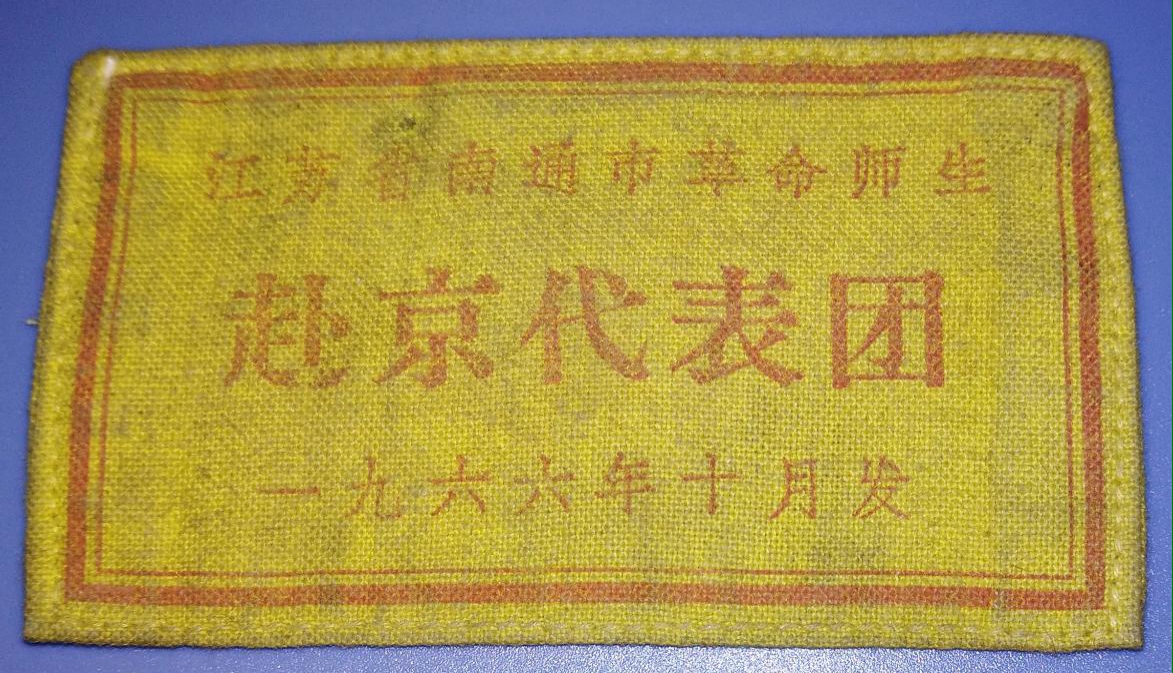 江苏省南通市革命师生
赴京代表团
一九六六年十月发